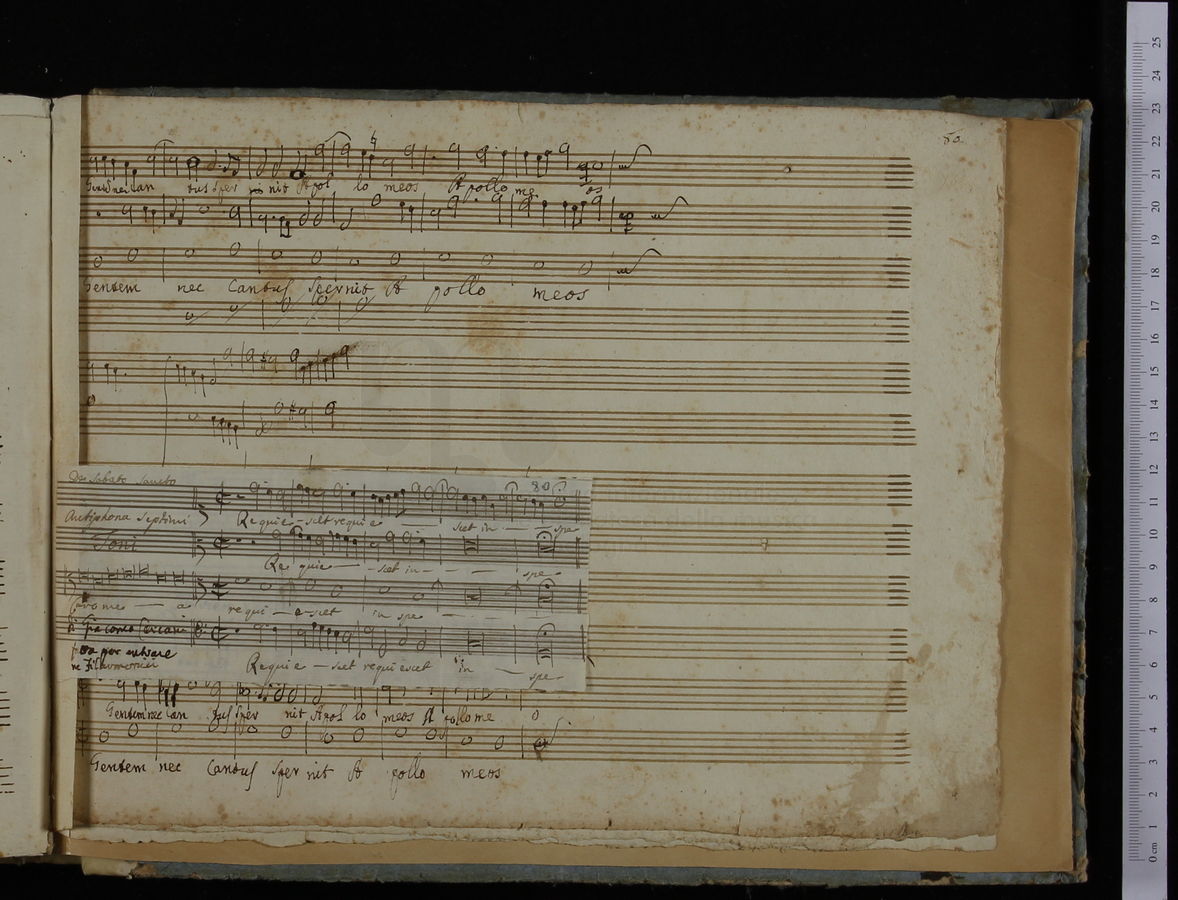 80.
Gentem nec Can tus Sper nit Apol lo meos Apollo me os
Gentem nec Cantus Spernit A pollo meos
80
De Sabato Sancto
Antiphona Septimi
Toni
Requie - scet requie scet in spe
Requie - scet in - spe
Caro me - a requi - e - scet in spe
Giacomo
Requie - scet requiescet in spe
Gentem nec Can tus Sper nit Apol lo meos Apollo me o
Gentem nec Cantus Sper nit A pollo meos
25
24
23
22
21
20
19
18
17
16
15
14
13
12
11
10
9
8
7
6
5
4
3
2
1
0 cm